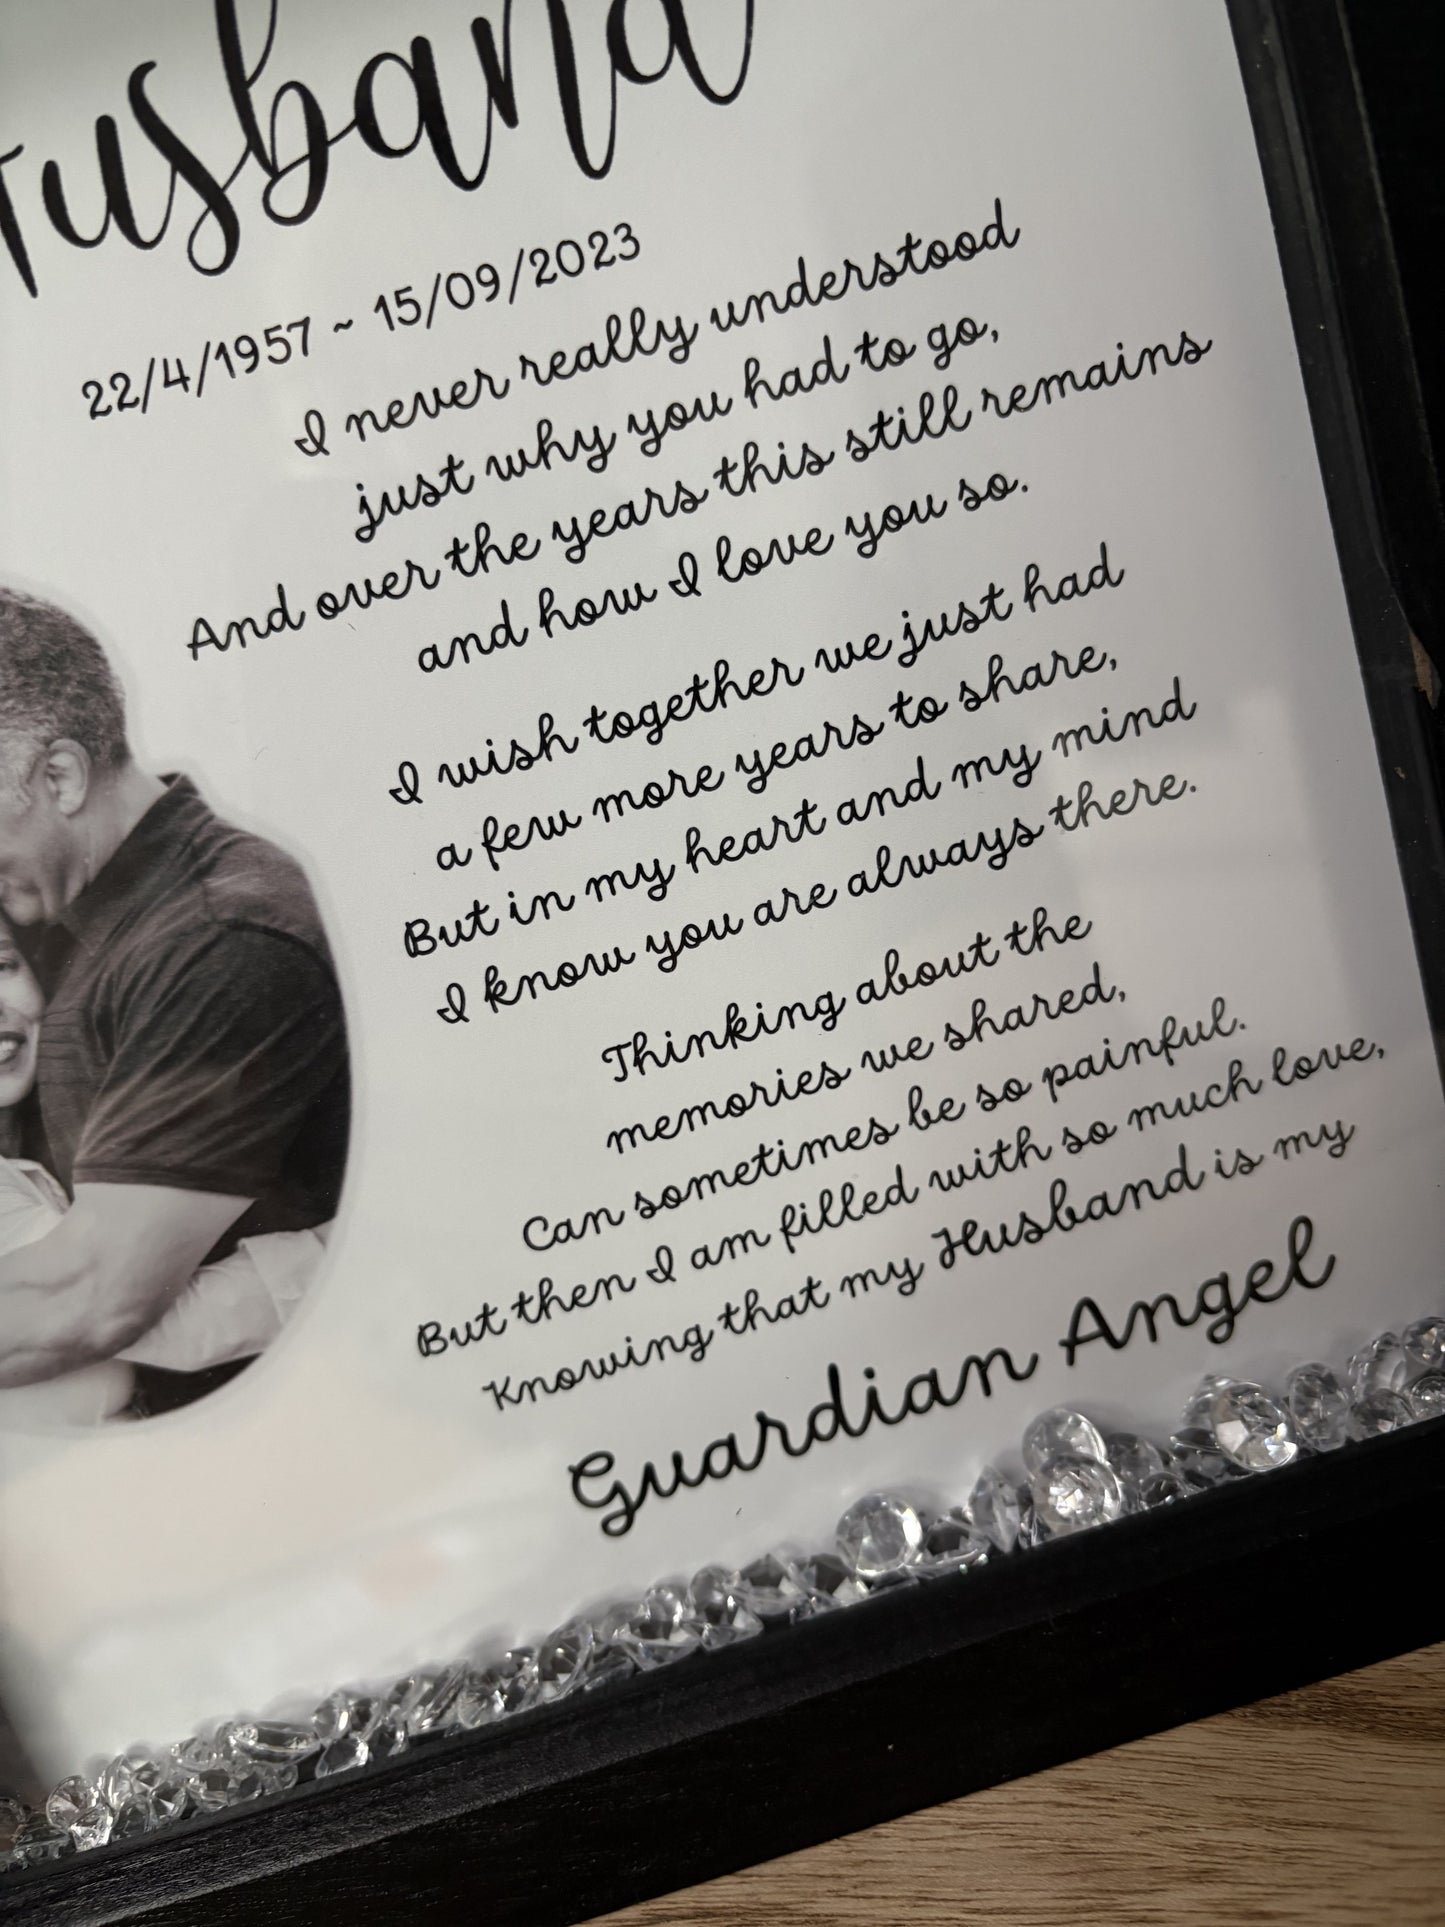 Husband
22/4/1957 ~ 15/09/2023
I never really understood
just why you had to go,
And over the years this still remains
and how I love you so.
I wish together we just had
a few more years to share,
But in my heart and my mind
I know you are always there.
Thinking about the
memories we shared,
Can sometimes be so painful.
But then I am filled with so much love,
Knowing that my Husband is my
Guardian Angel